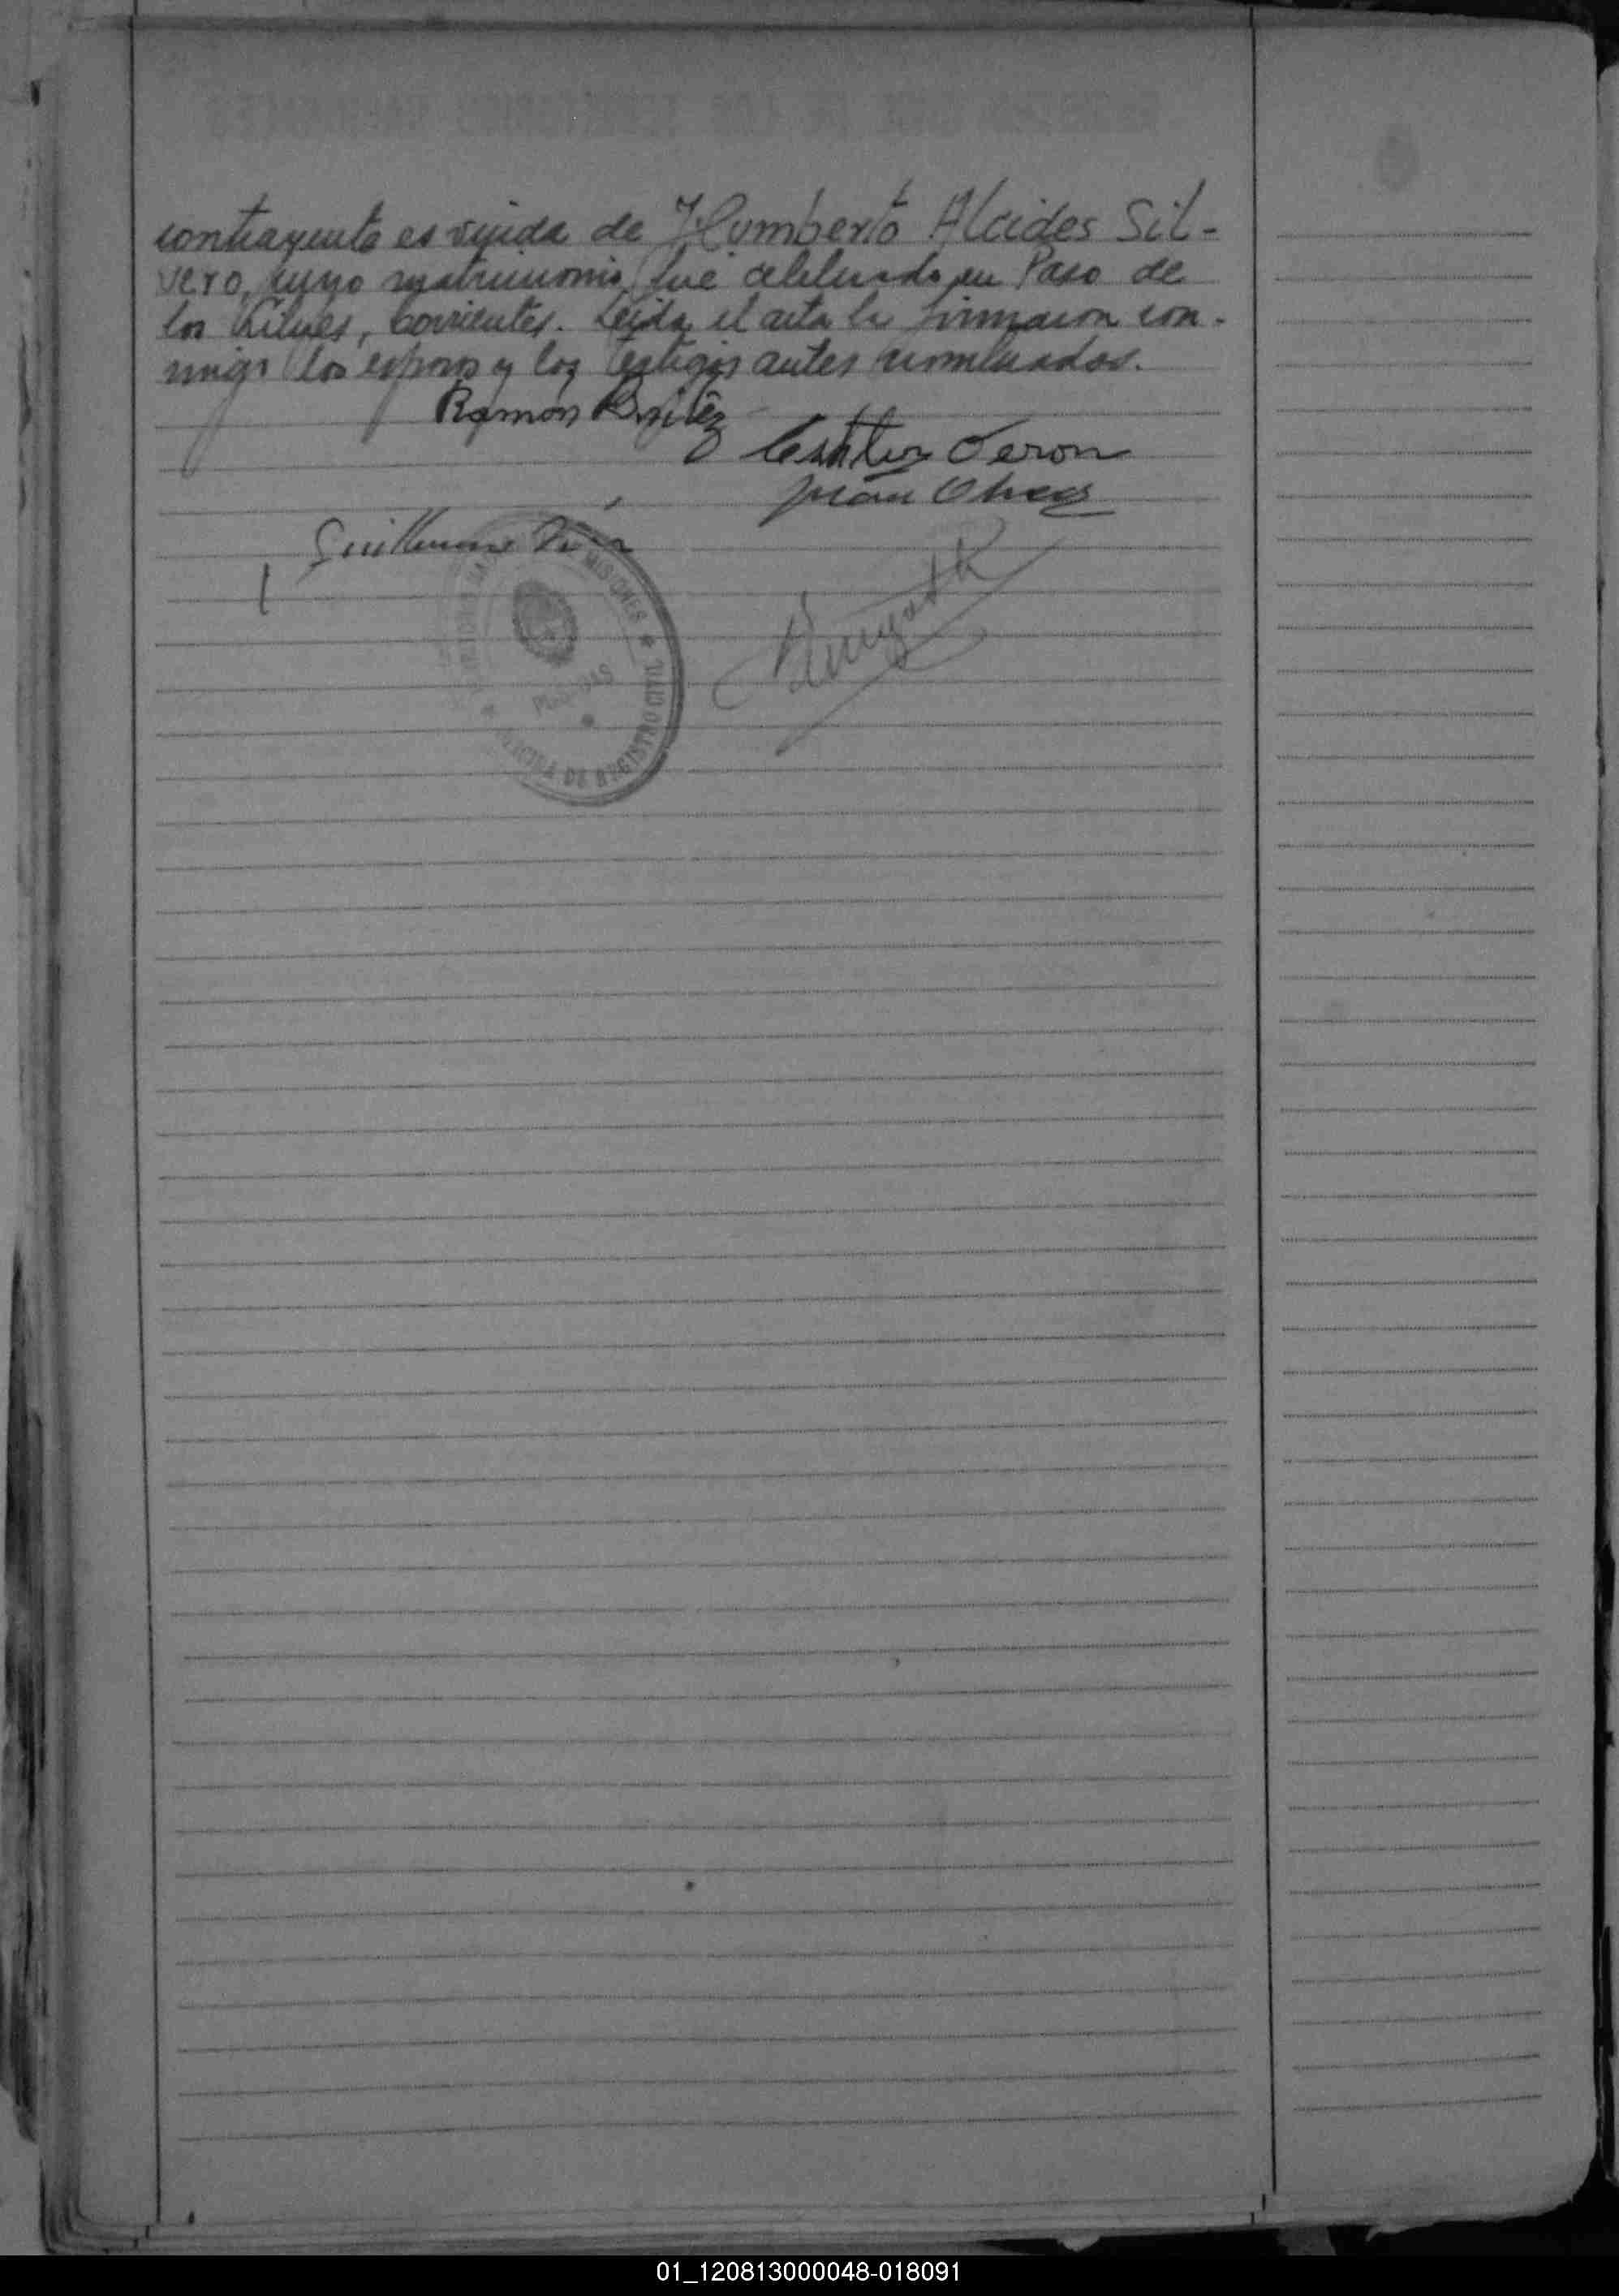 contrayente es viuda de Humberto Alcides Sil-
vero, cuyo matrimonio fué celebrado en Paso de
los Libres, Corrientes. Leida el acta la firmaron con-
migo los esposos y los testigos antes nombrados.
Ramón Benitez
Ceron
Juan
Guillermo
MISIONES
OFICINA DE REGISTRO CIVIL
01_120813000048-018091